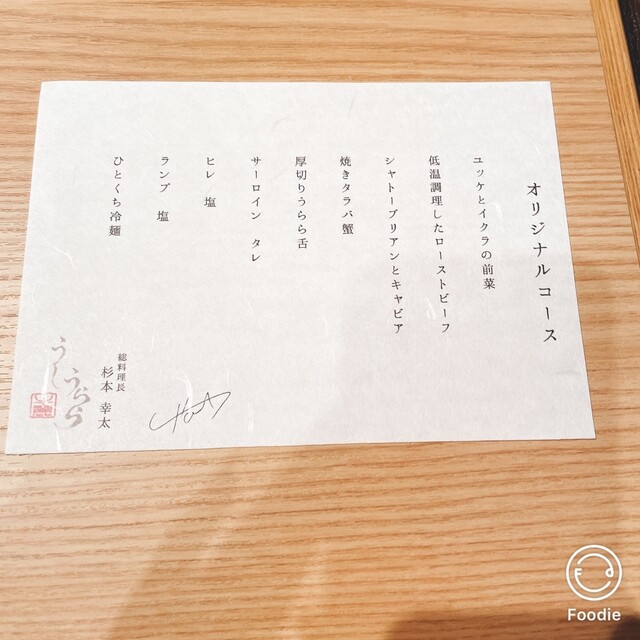 オリジナルコース
ユッケとイクラの前菜
低温調理したローストビーフ
シャトーブリアンとキャビア
焼きタラバ蟹
厚切りうらら舌
サーロイン　タレ
ヒレ　塩
ランプ　塩
ひとくち冷麺
総料理長
杉本　幸太
うし
うらら
Foodie